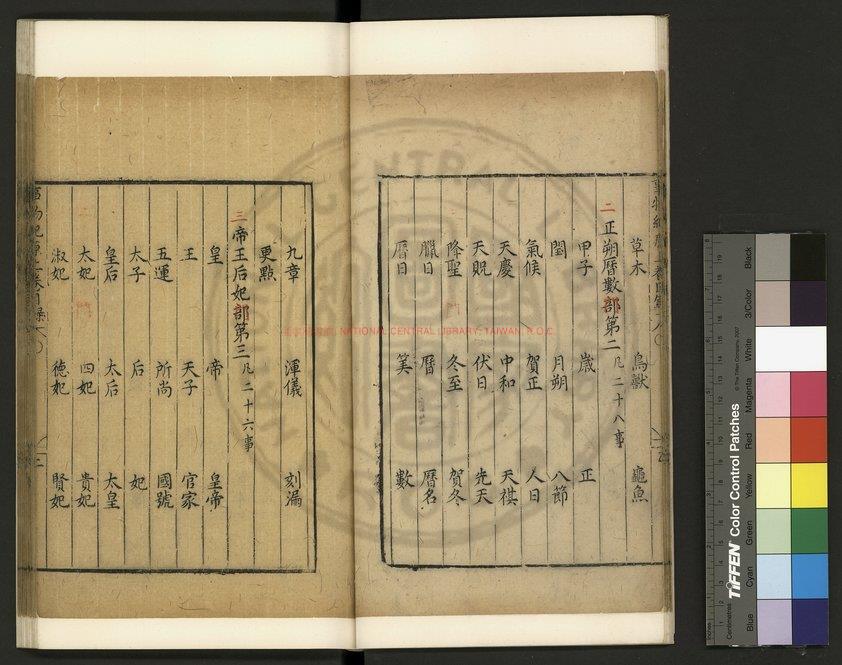 草木 鳥獸 龜魚
二 正朔曆數部第二 凡二十八事
甲子 歲 正
閏 月朔 八節
氣候 賀正 人日
天慶 中和 天祺
天貺 伏日 先天
降聖 冬至 賀冬
臘日 曆 曆名
曆日 筭 數
九章 渾儀 刻漏
更點
三 帝王后妃部第三 凡二十六事
皇 帝 皇帝
王 天子 官家
五運 所尚 國號
太子 后 妃
皇后 太后 太皇
太妃 四妃 貴妃
淑妃 德妃 賢妃
NATIONAL CENTRAL LIBRARY, TAIWAN, R.O.C.
TIFFEN Color Control Patches
© The Tiffen Company, 2007
Centimetres
Inches
Blue
Cyan
Green
Yellow
Red
Magenta
White
3/Color
Black